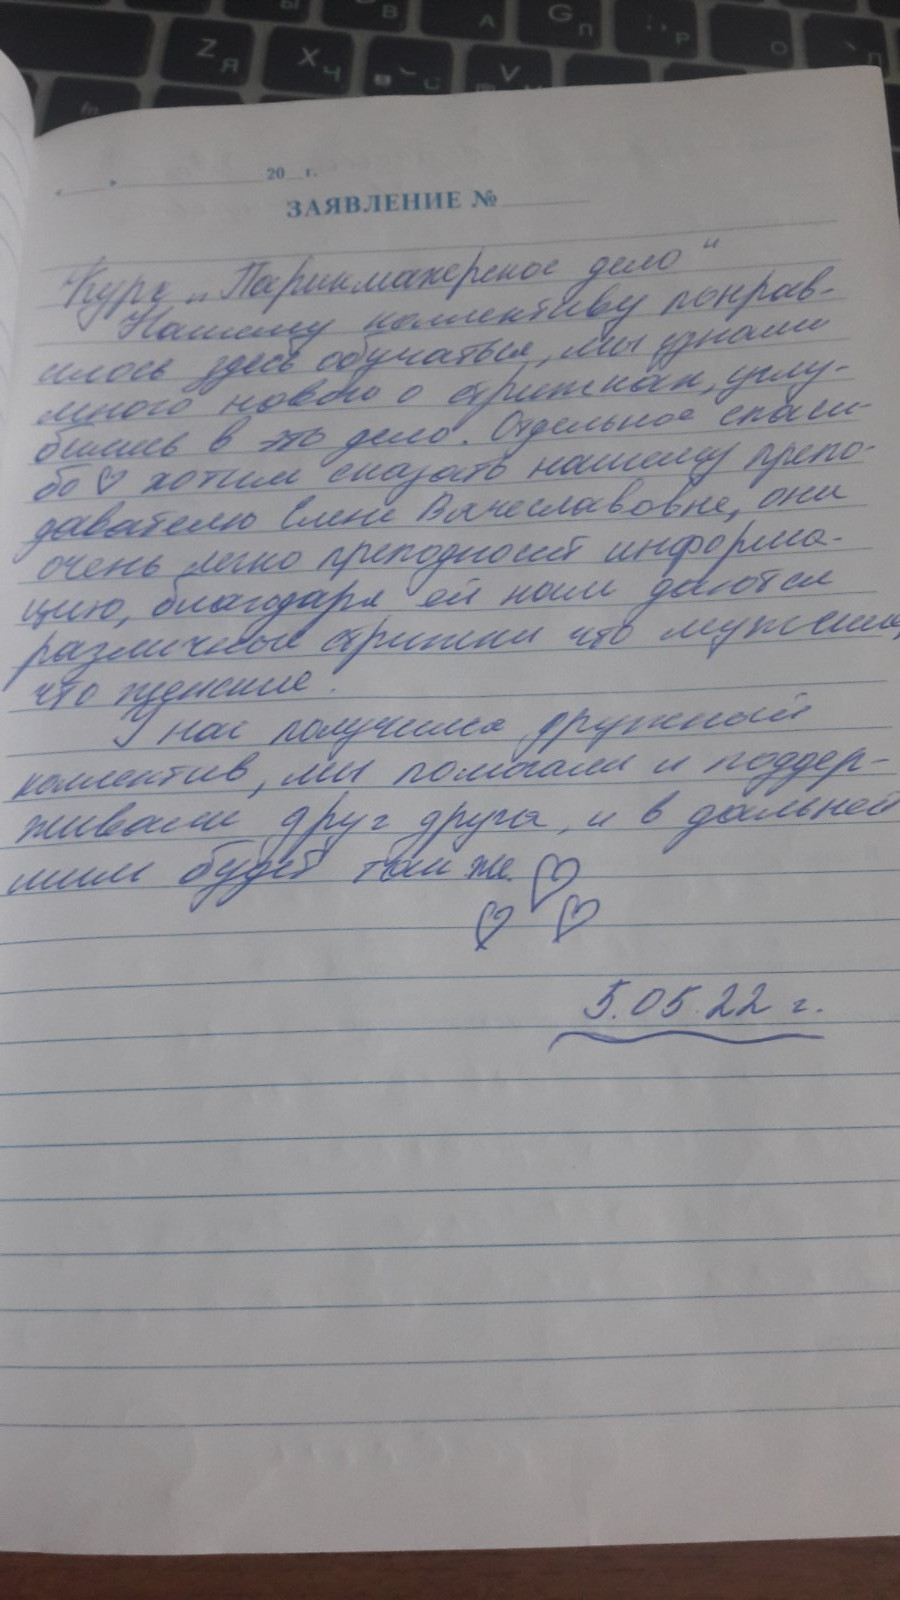 Z Я
X Ч
C
V
В
А
G П
Р
О
«___» ____________ 20__ г.
ЗАЯВЛЕНИЕ № ______
Курс „Парикмахерское дело"
Нашему коллективу понрав-
илось здесь обучаться, мы узнали
много нового о стрижках, углу-
бились в это дело. Отдельное спаси-
бо ♡ хотим сказать нашему препо-
давателю Елене Вячеславовне, они
очень легко преподносит информа-
цию, благодаря ей нам даются
различные стрижки что мужские,
что женские.
У нас получился дружный
коллектив, мы помогали и поддер-
живали друг друга, и в дальней
шим будет так же. ♡
♡ ♡
5.05.22 г.